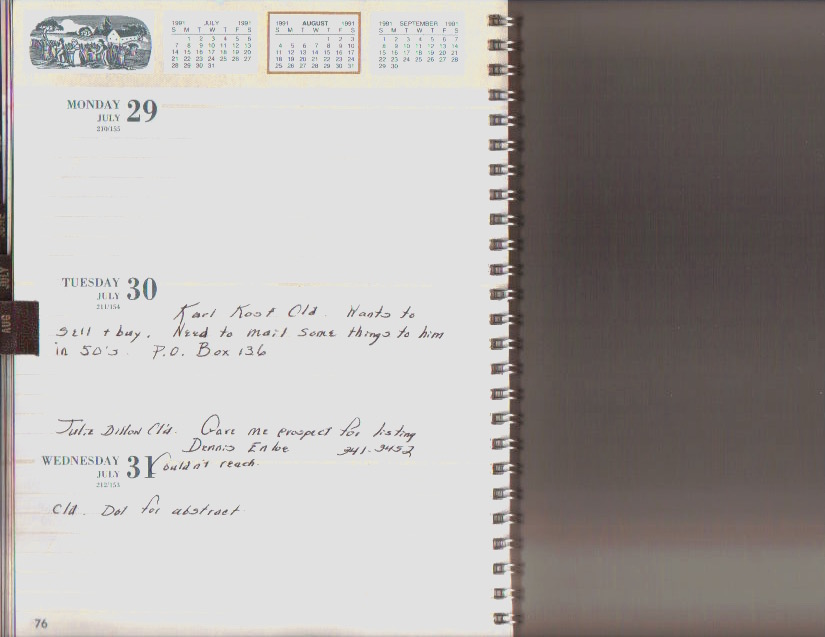 1991 JULY 1991
S M T W T F S
1 2 3 4 5 6
7 8 9 10 11 12 13
14 15 16 17 18 19 20
21 22 23 24 25 26 27
28 29 30 31
1991 AUGUST 1991
S M T W T F S
1 2 3
4 5 6 7 8 9 10
11 12 13 14 15 16 17
18 19 20 21 22 23 24
25 26 27 28 29 30 31
1991 SEPTEMBER 1991
S M T W T F S
1 2 3 4 5 6 7
8 9 10 11 12 13 14
15 16 17 18 19 20 21
22 23 24 25 26 27 28
29 30
MONDAY 29
JULY
210/155
TUESDAY 30
JULY
211/154
Karl Kost Cld. Wants to
sell + buy. Need to mail some things to him
in 50's. P.O. Box 136
Julie Dillon Cld. Gave me prospect for listing
Dennis Enloe 341-3452
WEDNESDAY 31 Couldn't reach.
JULY
212/153
Cld. Dot for abstract
JULY
AUG
76